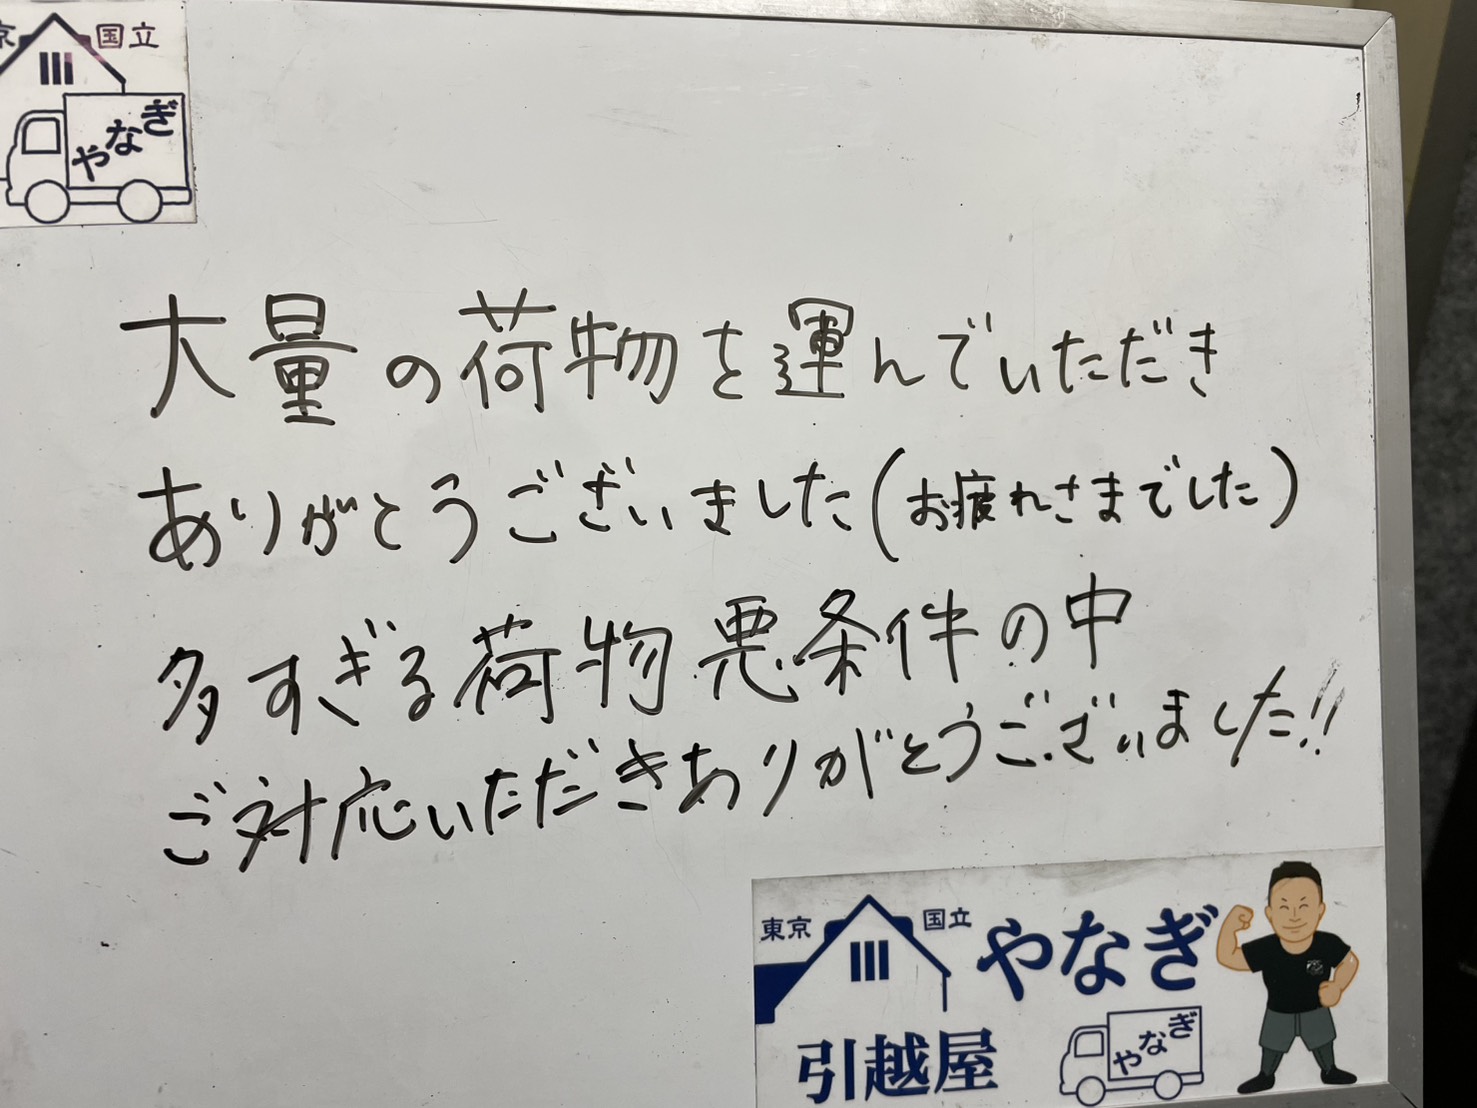 京 国立
やなぎ
大量の荷物を運んでいただき
ありがとうございました(お疲れさまでした)
多すぎる荷物悪条件の中
ご対応いただきありがとうございました!!
東京 国立 やなぎ
引越屋
やなぎ